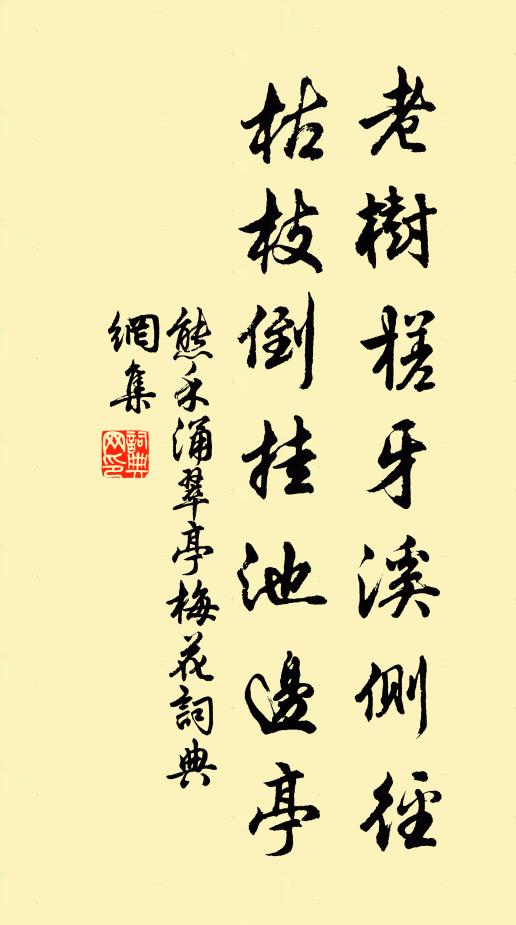 老樹槎牙溪側徑
枯枝倒挂池邊亭
熊禾涌翠亭梅花詞典
網集
詞典
网印